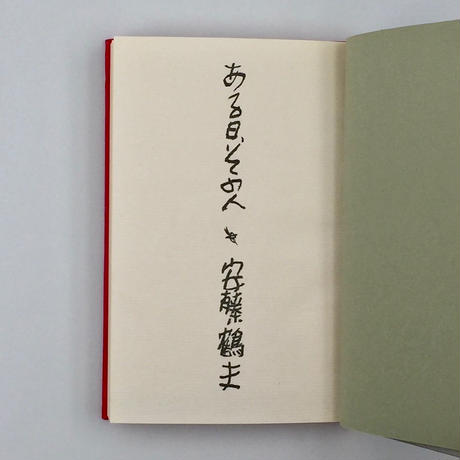 ある日、その人 安藤鶴夫